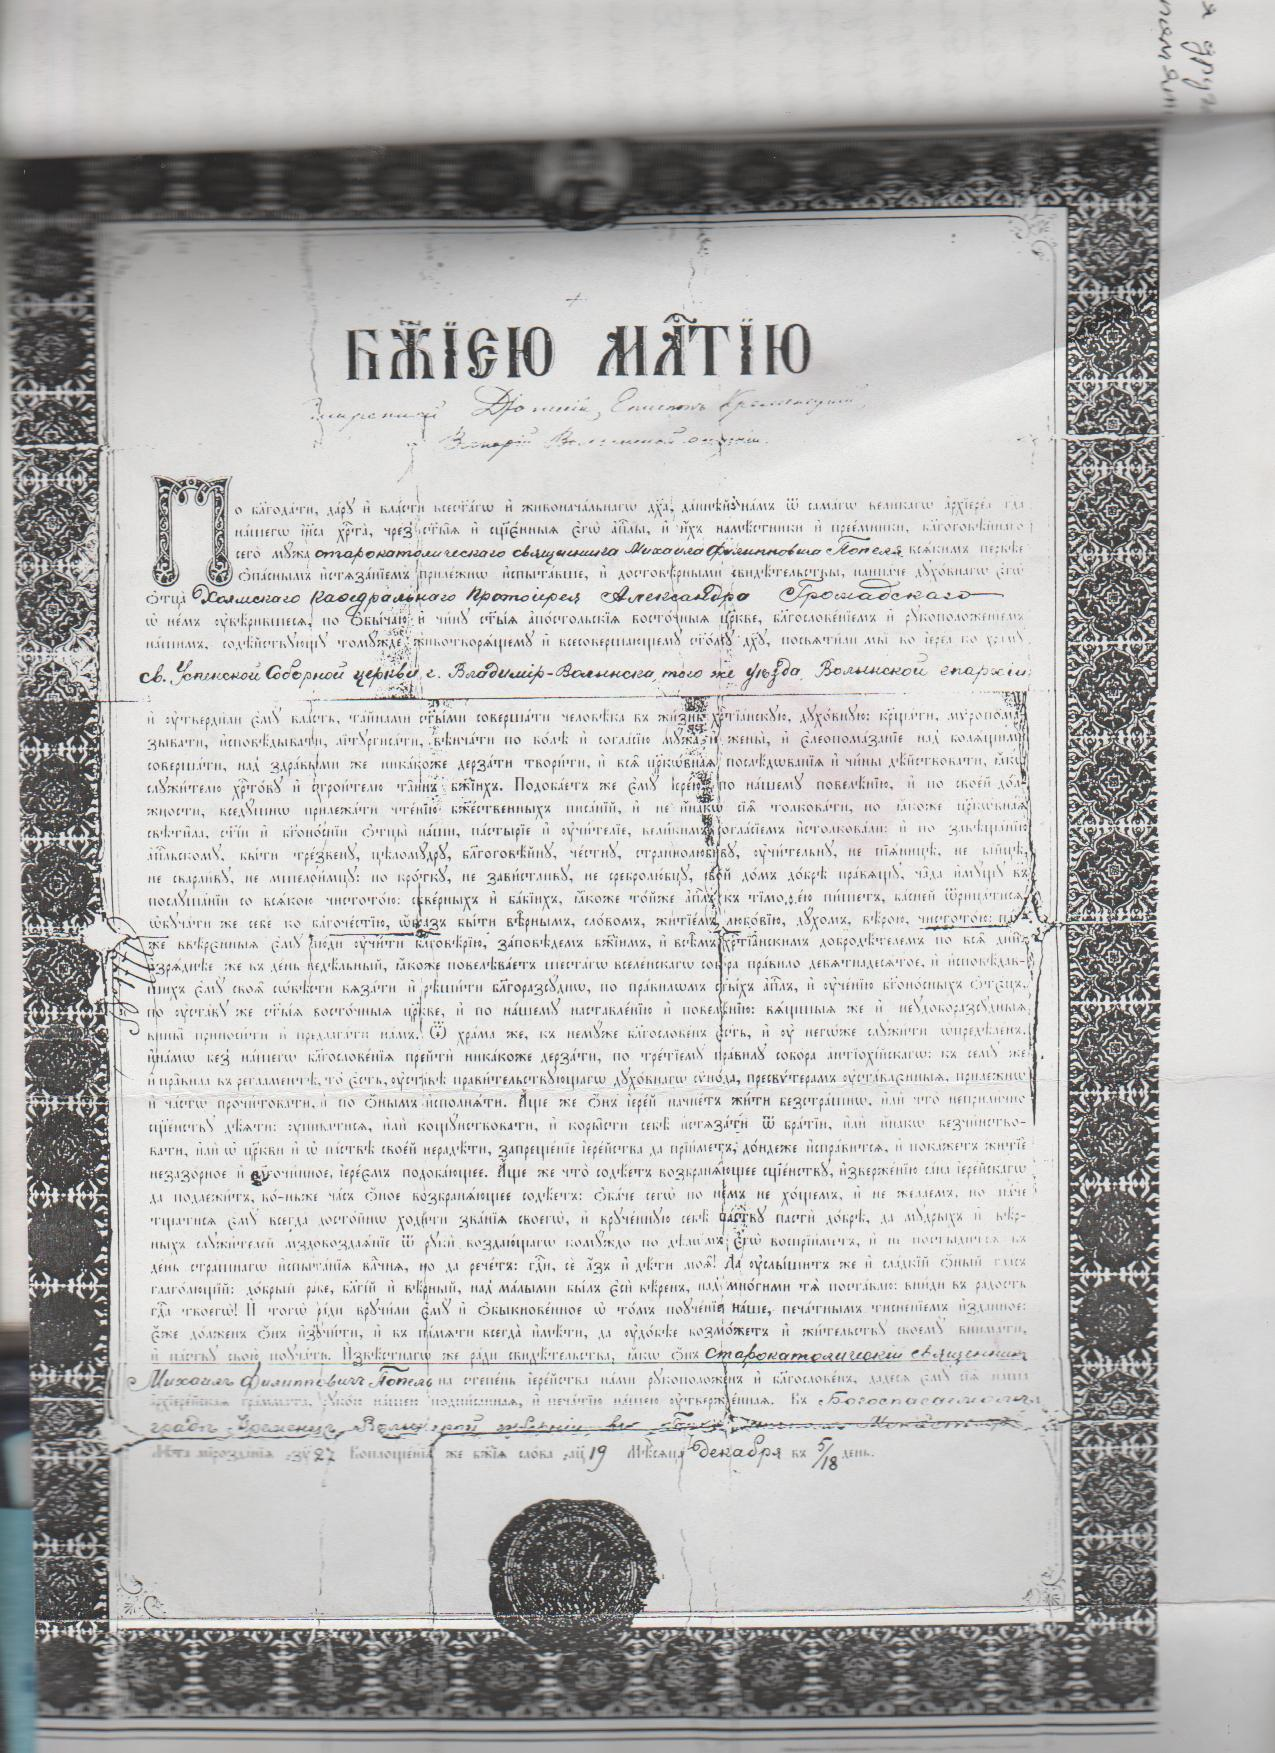 я друг
БЖ҃ІЕЮ МЛ҃ТІЮ
Смиренный Діонисій, Епископъ Кременецкій,
Викарій Волынской епархіи.
По бл҃года́ти, да́ру и҆ вла́сти всест҃а́гѡ и҆ живонача́льнагѡ дх҃а, да́ннѣй на́мъ ѿ самагѡ вели́кагѡ а҆рхїере́а гдⷭ҇а
на́шегѡ і҆и҃са хрⷭ҇та̀, чрез̾ ст҃ы́ѧ и҆ сщ҃е́нныѧ є҆гѡ̀ а҆пⷭ҇лы, и҆ и҆́хъ намѣ́стники и҆ прее́мники, бл҃гоговѣ́йнаго
сего̀ мꙋ́жа старокатолическаго священника Михаила Филипповича Попеля всѧ́кимъ пе́рвѣе
ѻ҆па́снымъ и҆стѧза́нїемъ прилѣ́жнѡ и҆спыта́вше, и҆ достовѣ́рными свидѣ́тельствы, наипа́че дꙋхо́внагѡ є҆гѡ̀
ѻ҆тца̀ Холмскаго Каѳедральнаго Протоіерея Александра Громадскаго
ѡ҆ не́мъ ᲂу҆вѣ́рившеся, по ѻ҆бы́чаю и҆ чи́нꙋ ст҃ы́ѧ а҆по́стольскїѧ восто́чныѧ цр҃кве, бл҃гослове́нїемъ и҆ рꙋкоположе́нїемъ
на́шимъ, содѣ́йствꙋющꙋ томꙋ́жде животворѧ́щемꙋ и҆ всесоверша́ющемꙋ ст҃о́мꙋ дх҃ꙋ, посвѧти́ли мы̀ во і҆ере́а ко хра́мꙋ
св. Успенской Соборной церкви г. Владимір-Волынска, того же уѣзда, Волынской епархіи
и҆ ᲂу҆тверди́ли є҆мꙋ̀ вла́сть, та́йнами ст҃ы́ми соверша́ти человѣ́ка въ жи́знь хрⷭ҇тїа́нскꙋю, дꙋхо́внꙋю: крⷭ҇ща́ти, мѵропома́-
зывати, и҆сповѣ́дывати, лїтꙋргиса́ти, вѣнча́ти по во́лѣ и҆ согла́сїю мꙋ́жа и҆ жены̀, и҆ є҆леопома́занїе над̾ болѧ́щими
соверша́ти, над̾ здра́выми же ника́коже дерза́ти твори́ти, и҆ всѧ̑ цр҃кѡ́внаѧ послѣ́дованїѧ и҆ чи́ны дѣ́йствовати, ꙗ҆́кѡ
слꙋжи́телю хрⷭ҇то́вꙋ и҆ строи́телю та́инъ бж҃їихъ. Подоба́етъ же є҆мꙋ̀ і҆ере́ю по на́шемꙋ повелѣ́нїю, и҆ по свое́й до́л-
жности, вседꙋ́шнѡ прилежа́ти чте́нїю бж҃е́ственныхъ писа́нїй, и҆ не и҆на́кѡ сїѧ̑ толкова́ти, но ꙗ҆́коже цр҃кѡ́внаѧ
свѣти̑ла, ст҃і́и и҆ бг҃оно́снїи ѻ҆тцы̀ на́ши, па́стырїе и҆ ᲂу҆чи́телїе, вели́кимъ согла́сїемъ и҆столкова́ли: и҆ по завѣща́нїю
а҆пⷭ҇льскомꙋ, бы́ти тре́звенꙋ, цѣломꙋ́дрꙋ, бл҃гоговѣ́йнꙋ, че́стнꙋ, страннолюби́вꙋ, ᲂу҆чи́тельнꙋ, не пїѧ́ницѣ, не бі́йцѣ,
не сварли́вꙋ, не мшелои́мцꙋ: но кро́ткꙋ, не зави́стливꙋ, не сребролю́бцꙋ, сво́й до́мъ до́брѣ пра́вѧщꙋ, ча̑да и҆мꙋ́щꙋ въ
послꙋша́нїи со всѧ́кою чистото́ю: скве́рныхъ и҆ ба́бїихъ, ꙗ҆́коже то́йже а҆пⷭ҇лъ къ тїмоѳе́ю пи́шетъ, ба́сней ѿрица́тисѧ
ѡ҆бꙋча́ти же себѐ ко бл҃гоче́стїю, ѡ҆́браз̾ бы́ти вѣ̑рнымъ, сло́вомъ, житїе́мъ, любо́вїю, дꙋ́хомъ, вѣ́рою, чистото́ю: па́-
же ввѣ́ренныѧ є҆мꙋ̀ лю́ди ᲂу҆чи́ти бл҃говѣ́рїю, за́повѣдемъ бж҃їимъ, и҆ всѣ̑мъ хрⷭ҇тїа́нскимъ добродѣ́телемъ по всѧ̑ дни̑,
и҆зрѧ́днѣе же въ де́нь недѣ́льный, ꙗ҆́коже повелѣва́етъ шеста́гѡ вселе́нскагѡ собо́ра пра́вило девѧтна́десѧтое, и҆ и҆сповѣ́дав-
шихъ є҆мꙋ̀ своѧ̑ сѡ́вѣсти вѧза́ти и҆ рѣши́ти бл҃горазсꙋ́днѡ, по пра́вилѡмъ ст҃ы́хъ а҆пⷭ҇лъ, и҆ ᲂу҆че́нїю бг҃оно́сныхъ ѻ҆тє́цъ,
по ᲂу҆ста́вꙋ же ст҃ы́ѧ восто́чныѧ цр҃кве, и҆ по на́шемꙋ наставле́нїю и҆ повелѣ́нїю: вѧ́щшыѧ же и҆ неꙋдоборазсꙋ́дныѧ
вины̑ приноси́ти и҆ предлага́ти на́мъ. Ѿ хра́ма же, къ немꙋ́же бл҃гослове́нъ є҆́сть, и҆ ᲂу҆ негѡ́же слꙋжи́ти ѡ҆предѣле́нъ,
и҆на́мѡ без̾ на́шегѡ бл҃гослове́нїѧ прейтѝ ника́коже дерза́ти, по тре́тїемꙋ пра́вилꙋ собо́ра а҆нтїохі́йскагѡ: къ семꙋ́ же
и҆ пра̑вила въ регла́ментѣ, то̀ є҆́сть, ᲂу҆ста́вѣ прави́тельствꙋющагѡ дꙋхо́внагѡ сѵно́да, пресвѵ́терамъ ᲂу҆ставле́нныѧ, прилѣ́жнѡ
и҆ ча́стѡ прочи́товати, и҆ по ѻ҆́нымъ и҆сполнѧ́ти. А҆́ще же ѻ҆́нъ і҆ере́й начне́тъ жи́ти безстра́шнѡ, и҆лѝ что̀ неприли́чно
сщ҃е́нствꙋ дѣ́ѧти: ᲂу҆пива́тисѧ, и҆лѝ кощꙋ́нствовати, и҆ коры́сти себѣ̀ и҆стѧза́ти ѿ бра́тїи, и҆лѝ и҆на́кѡ безчи́нство-
вати, и҆лѝ ѡ҆ цр҃кви и҆ ѡ҆ па́ствѣ свое́й нерадѣ́ти, запреще́нїе і҆ере́йства да прїи́метъ, до́ндеже и҆спра́витсѧ, и҆ пока́жетъ житїѐ
незазо́рное и҆ бл҃гочи́нное, і҆ере́ємъ подоба́ющее. А҆́ще же что̀ содѣ́етъ возбранѧ́ющее сщ҃е́нствꙋ, и҆зверже́нїю са́на і҆ере́йскагѡ
да подлежи́тъ, во́ньже ча́съ ѻ҆́ное возбранѧ́ющее содѣ́етъ: ѻ҆ба́че сегѡ̀ по не́мъ не хо́щемъ, и҆ не жела́емъ, но па́че
тща́тисѧ є҆мꙋ̀ всегда̀ досто́йнѡ ходи́ти зва́нїѧ своегѡ̀, и҆ врꙋче́ннꙋю себѣ̀ па́ствꙋ пастѝ до́брѣ, да мꙋ́дрыхъ и҆ вѣ́р-
ныхъ слꙋжи́телей мздовоздаѧ́нїе ѿ рꙋкѝ воздаю́щагѡ комꙋ́ждо по дѣлѡ́мъ є҆гѡ̀ воспрїи́метъ, и҆ не постыди́тсѧ въ
де́нь стра́шнагѡ и҆спыта́нїѧ вл҃чнѧ, но да рече́тъ: гдⷭ҇и, сѐ а҆́зъ и҆ дѣ́ти моѧ̑! Да ᲂу҆слы́шитъ же и҆ сла́дкїй ѻ҆́ный гла́съ
глаго́лющїй: до́брый ра́бе, бл҃гі́й и҆ вѣ́рный, над̾ ма́лыми бы́лъ є҆сѝ вѣ́ренъ, над̾ мно́гими тѧ̀ поста́влю: вни́ди въ ра́дость
гдⷭ҇а твоегѡ̀! И҆ тогѡ̀ ра́ди врꙋчи́ли є҆мꙋ̀ и҆ ѻ҆быкнове́нное ѡ҆ то́мъ поꙋче́нїе на́ше, печа́тнымъ тисне́нїемъ и҆́зданное:
є҆́же до́лженъ ѻ҆́нъ и҆зꙋчи́ти, и҆ въ па́мѧти всегда̀ и҆мѣ́ти, да ᲂу҆до́бѣе возмо́жетъ и҆ жи́тельствꙋ своемꙋ̀ внима́ти,
и҆ па́ствꙋ свою̀ поꙋча́ти. И҆звѣ́стнагѡ же ра́ди свидѣ́тельства, ꙗ҆́кѡ ѻ҆́нъ старокатолическій священникъ
Михаилъ Филипповичъ Попель на сте́пень і҆ере́йства на́ми рꙋкоположе́нъ и҆ бл҃гослове́нъ, даде́сѧ є҆мꙋ̀ сїѧ̀ на́ша
а҆рхїере́йская гра́мата, рꙋко́ю на́шею подпи́санная, и҆ печа́тїю на́шею ᲂу҆твержде́нная. Въ Богоспасаемомъ
градѣ Кременцѣ, Волынской губерніи, въ Монастырѣ
Лѣ́та мїрозда́нїѧ ҂зу 27 Воплоще́нїѧ же бж҃їѧ сло́ва ҂ац 19 Мѣ́сѧца Декабря въ 5/18 де́нь.